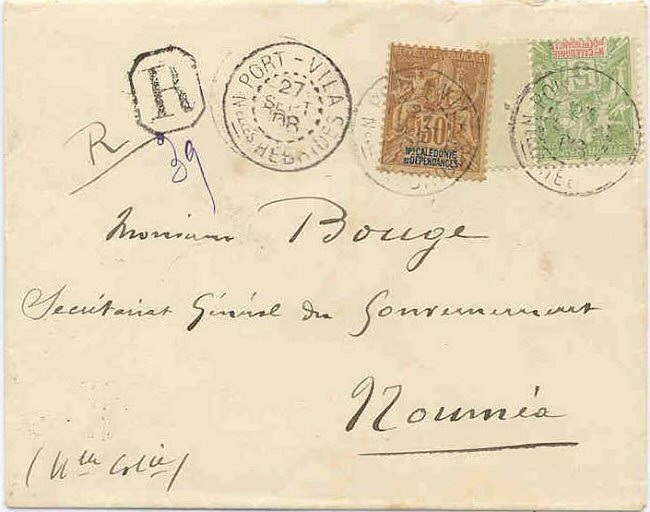 R
PORT-VILA
27
SEPT
08
Nlles HEBRIDES
30
Nlle CALÉDONIE
ET DÉPENDANCES
5
Nlle CALÉDONIE
ET DÉPENDANCES
R
39
Monsieur Bouge
Secrétariat Général du Gouvernement
Nouméa
(Nlle Calie)